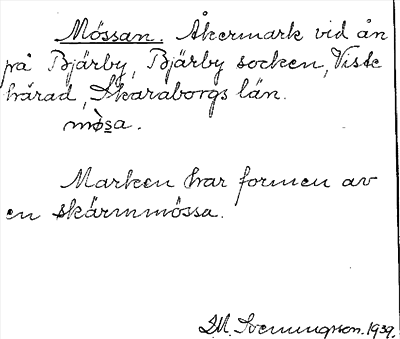 Mössan. Åkermark vid ån
på Bjärby, Bjärby socken, Viste
härad, Skaraborgs län.
mòsa.
Marken har formen av
en skärmmössa.
M. Svenungson. 1939.